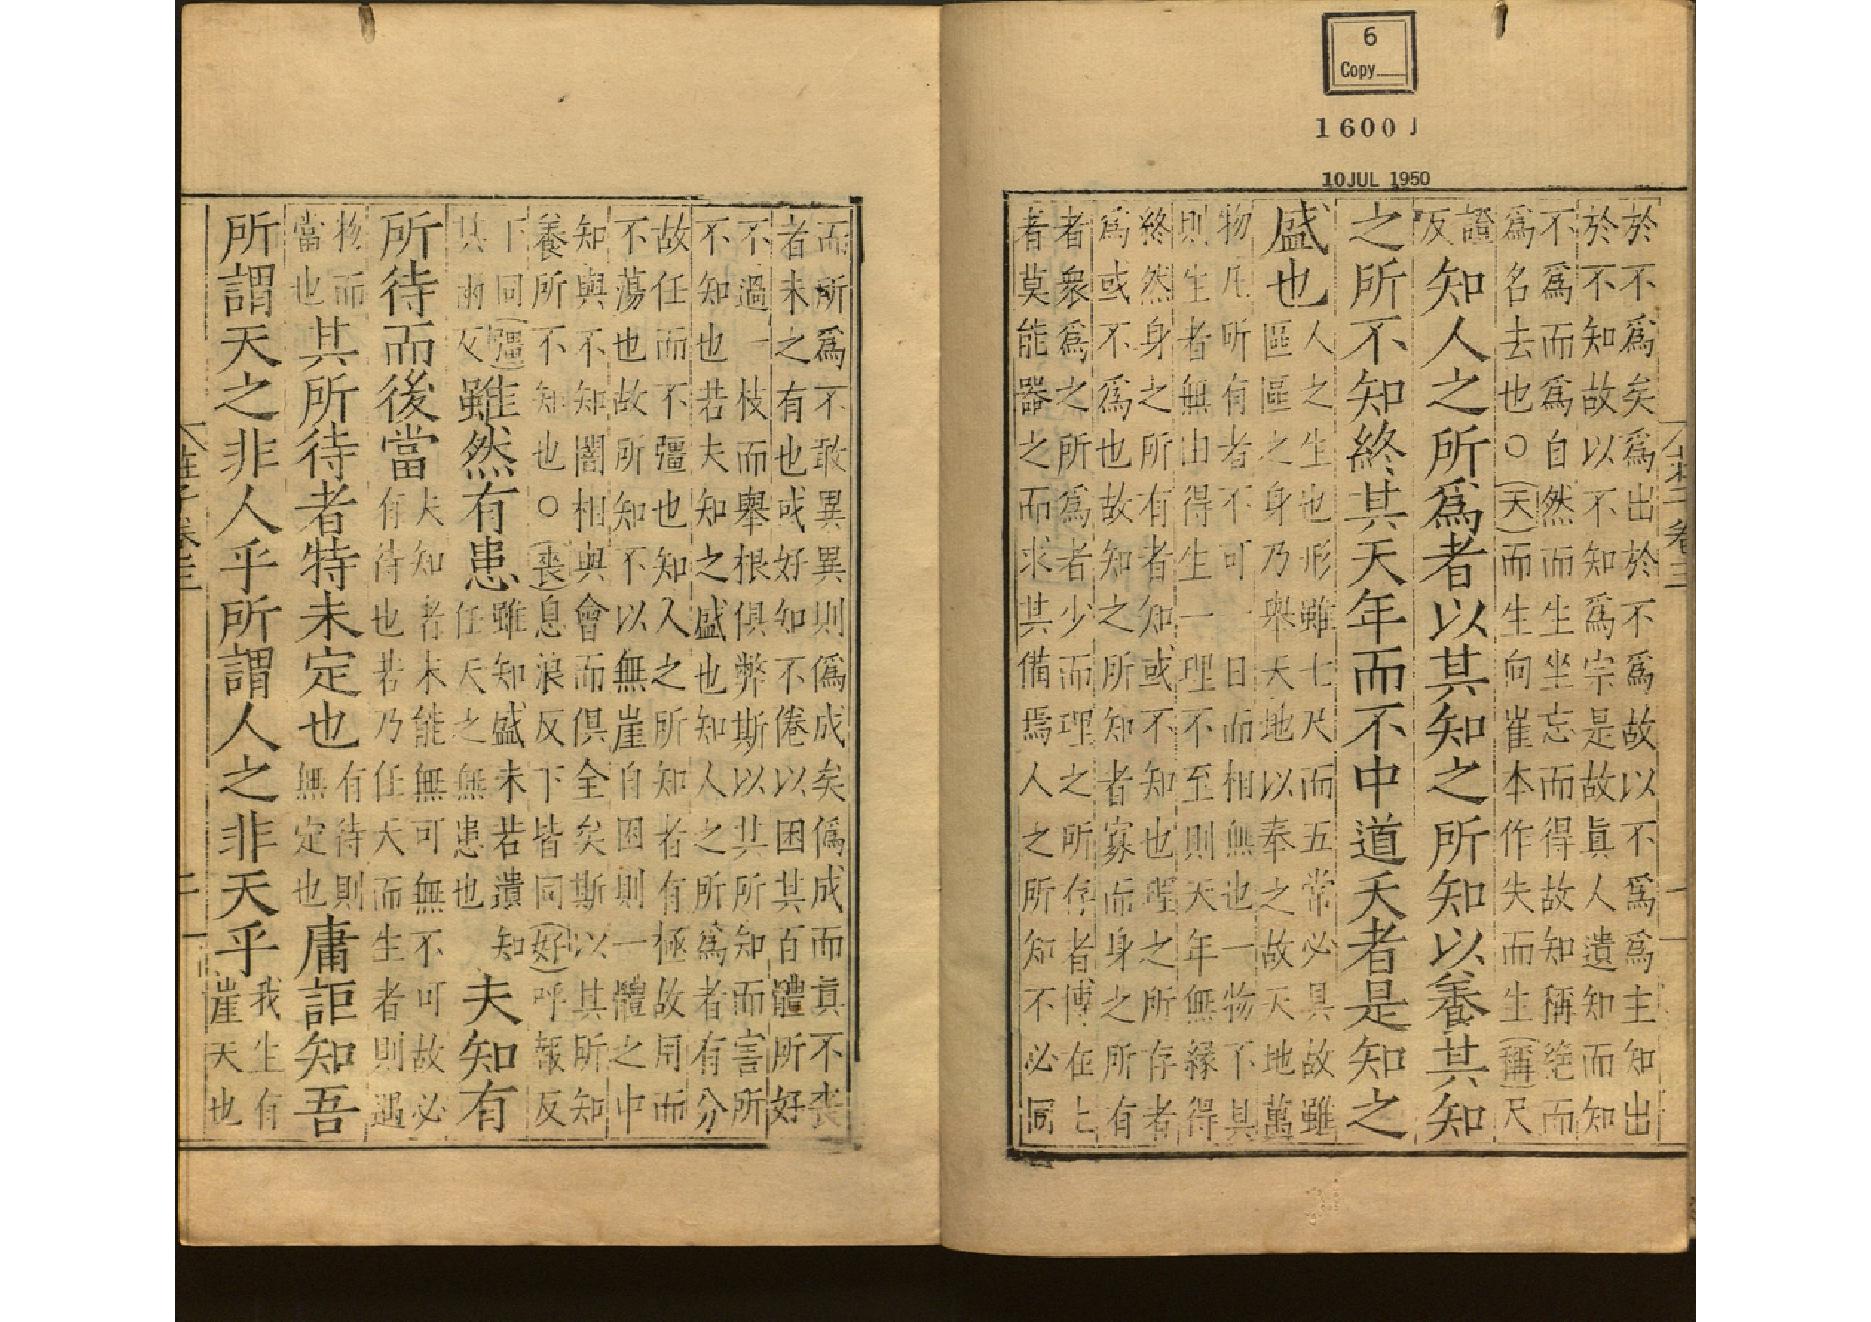 6
Copy
1600 J
10 JUL 1950
於不爲矣爲出於不爲故以不爲爲主知出
於不知故以不知爲宗是故眞人遺知而知
不爲而爲自然而生坐忘而得故知稱絶而
爲名去也○(天)而生向崔本作失而生(稱)尺
證反知人之所爲者以其知之所知以養其知
之所不知終其天年而不中道夭者是知之
盛也人之生也形雖七尺而五常必具故雖
區區之身乃舉天地以奉之故天地萬
物凡所有者不可一日而相無也一物不具
則生者無由得生一理不至則天年無緣得
終然身之所有者知或不知也理之所存者
爲或不爲也故知之所知者寡而身之所有
者衆爲之所爲者少而理之所存者博在上
者莫能器之而求其備焉人之所知不必同
而所爲不敢異異則僞成矣僞成而眞不喪
者未之有也或好知不倦以困其百體所好
不過一枝而舉根俱弊斯以其所知而害所
不知也若夫知之盛也知人之所爲者有分
故任而不彊也知人之所知者有極故用而
不蕩也故所知不以無崖自困則一體之中
知與不知闇相與會而俱全矣斯以其所知
養所不知也○(喪)息浪反下皆同(好)呼報反
下同(彊)其兩反雖然有患雖知盛未若遺知任天之無患也夫知有
所待而後當夫知者未能無可無不可故必有待也若乃任天而生者則遇
物而當也其所待者特未定也有待則無定也庸詎知吾
所謂天之非人乎所謂人之非天乎我生有崖天也